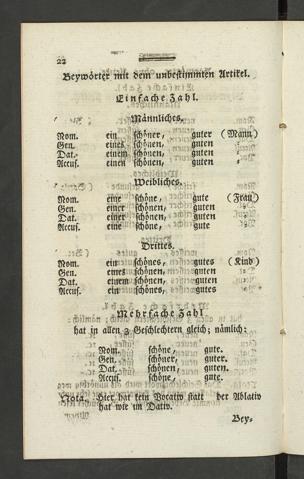 22
Beywörter mit dem unbestimmten Artikel.
Einfache Zahl.
Männliches.
Nom. ein schöner, guter (Mann)
Gen. eines schönen, guten
Dat. einem schönen, guten
Accus. einen schönen, guten
Weibliches.
Nom. eine schöne, gute (Frau)
Gen. einer schönen, guten
Dat. einer schönen, guten
Accus. eine schöne, gute
Drittes.
Nom. ein schönes, gutes (Kind)
Gen. eines schönen, guten
Dat. einem schönen, guten
Accus. ein schönes, gutes
Mehrfache Zahl
hat in allen 3 Geschlechtern gleich; nämlich:
Nom. schöne, gute.
Gen. schöner, guter.
Dat. schönen, guten.
Accus. schöne, gute.
Nota. Hier hat kein Vocativ statt der Ablativ
hat wie im Dativ.
Bey-